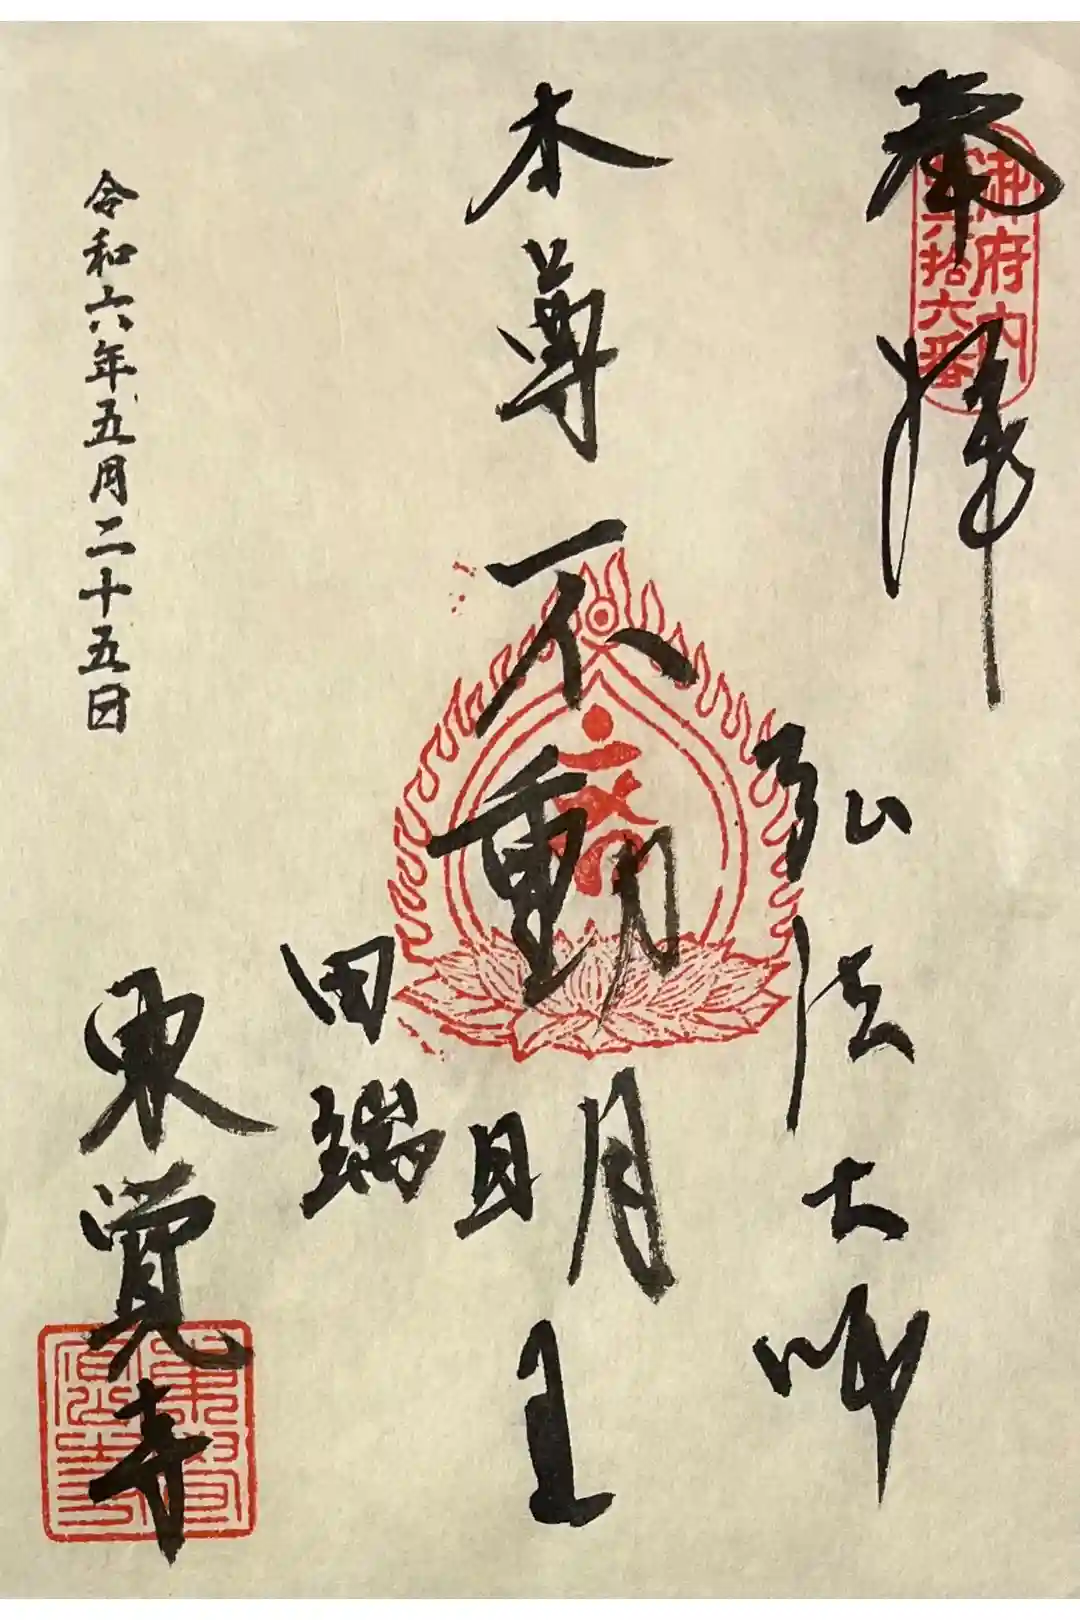 奉拝
御府内
六十六番
弘法大師
本尊不動明王
田端
東覚寺
令和六年五月二十五日